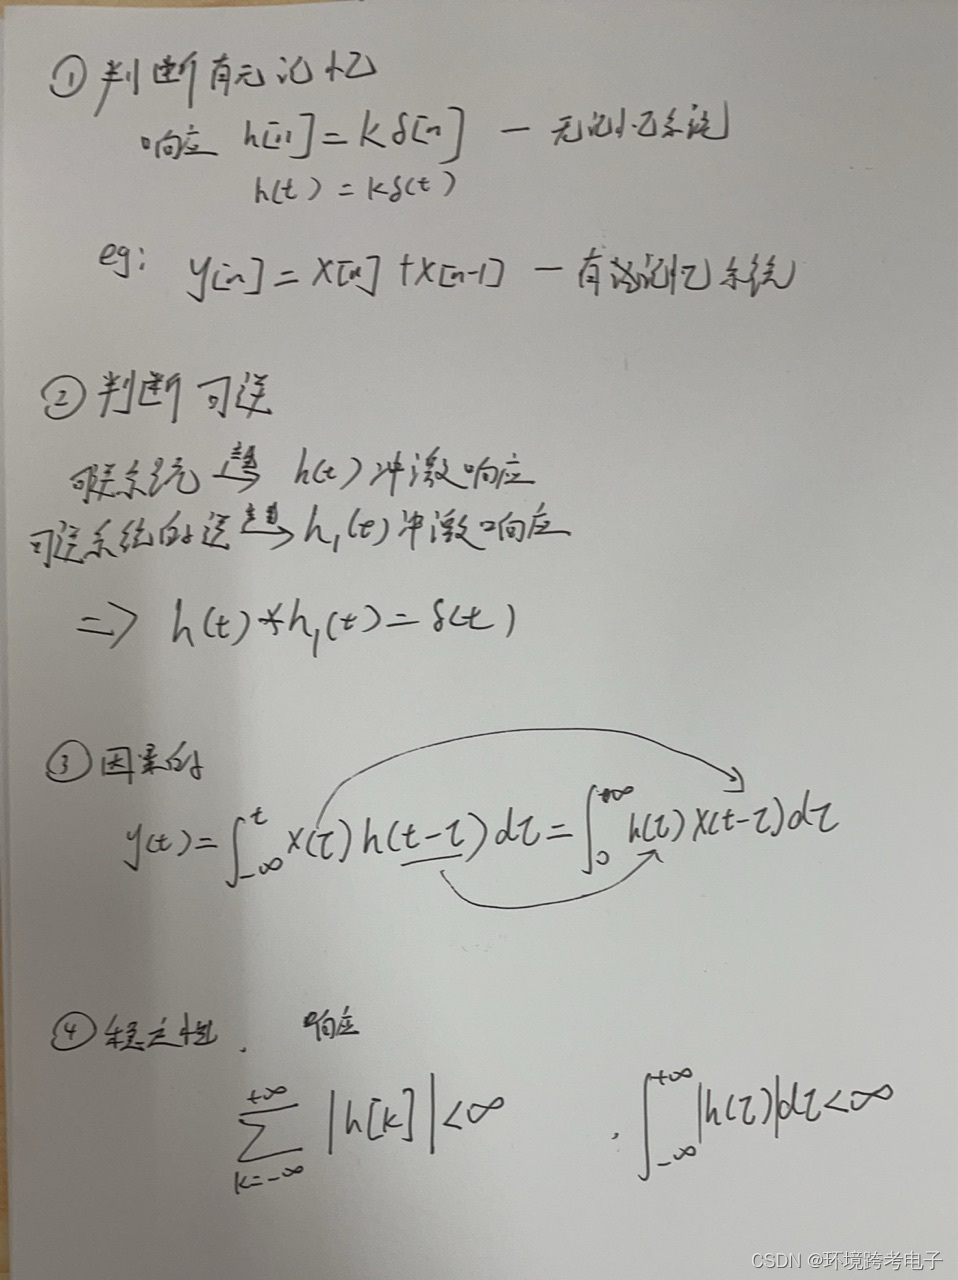 ① 判断有无记忆
响应 h[n]=kδ[n] — 无记忆系统
h(t)=kδ(t)
eg: y[n]=x[n]+x[n-1] — 有记忆系统
② 判断可逆
可逆系统 → h(t)冲激响应
可逆系统的逆 → h₁(t)冲激响应
=> h(t)*h₁(t)=δ(t)
③ 因果的
y(t)=∫_{-∞}^{t} x(τ)h(t-τ)dτ=∫_{0}^{+∞} h(τ)x(t-τ)dτ
④ 稳定性. 响应
∑_{k=-∞}^{+∞} |h[k]|<∞ , ∫_{-∞}^{+∞} |h(τ)|dτ<∞
CSDN @环境跨考电子